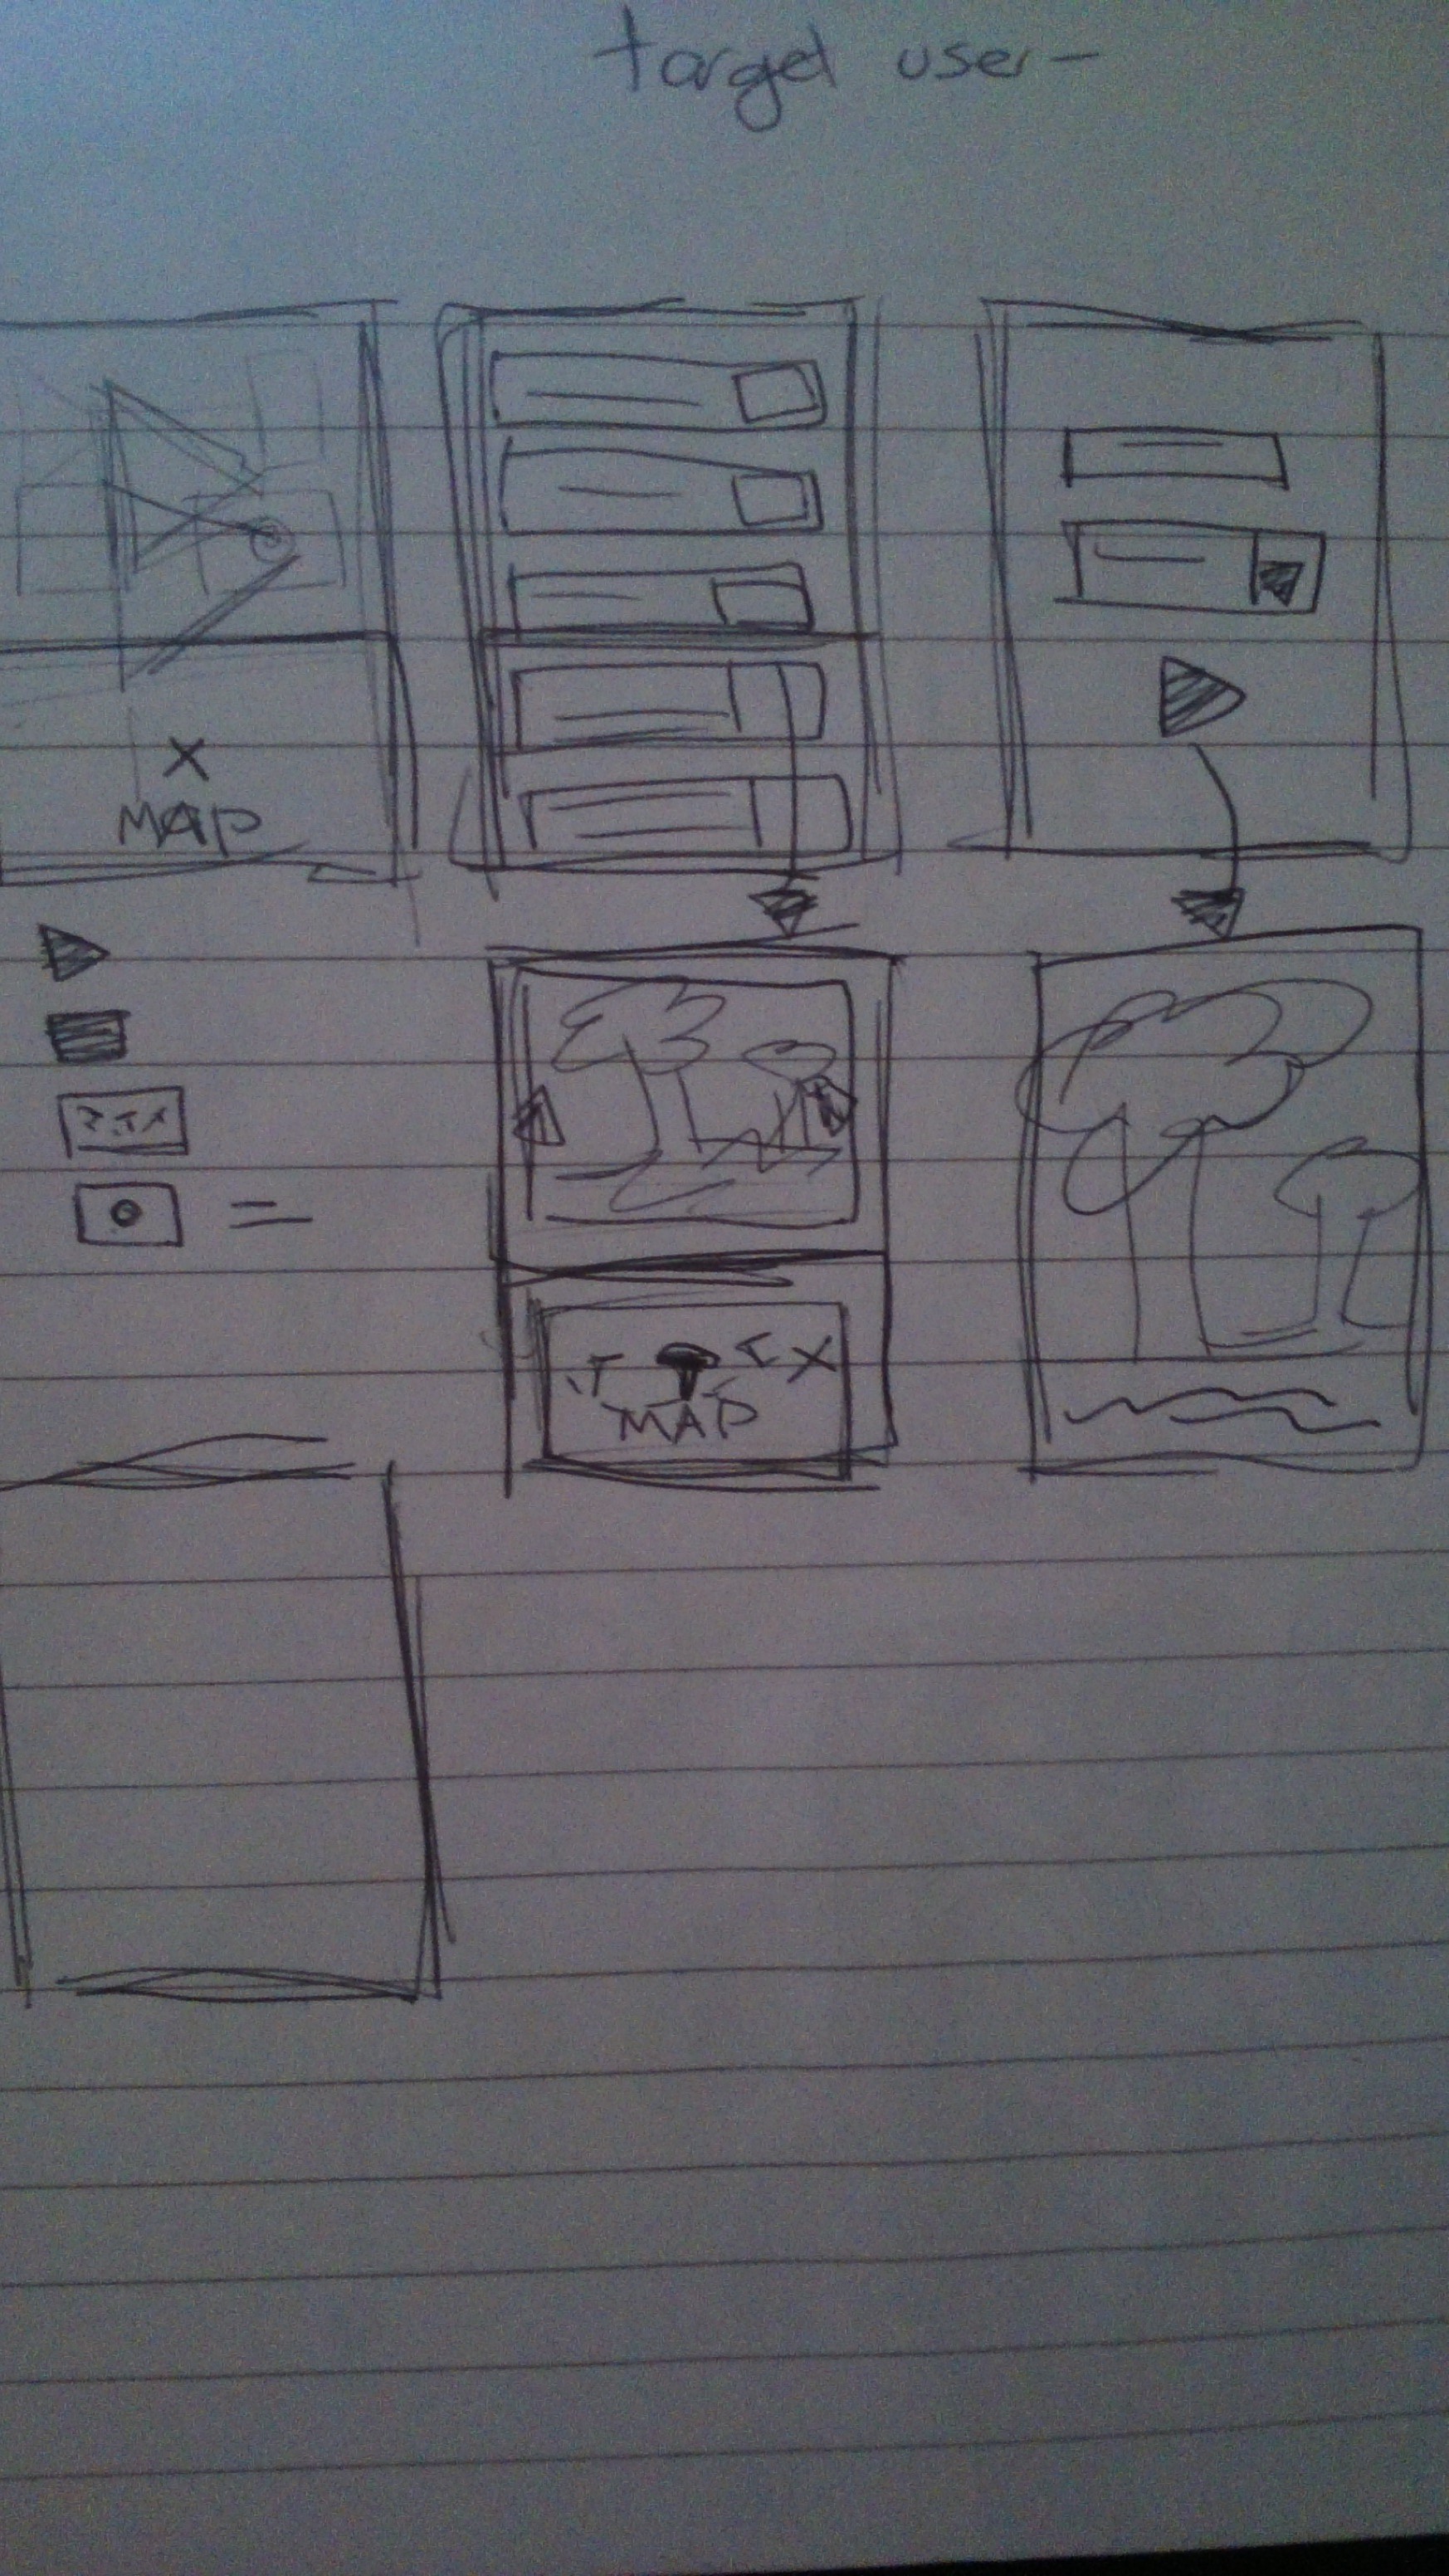 target user-
X
MAP
X
MAP